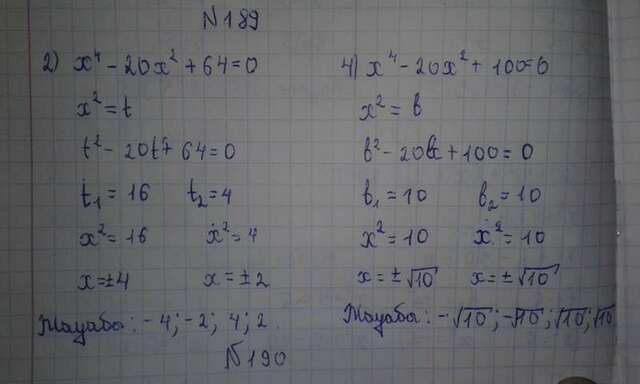 №189
2) x⁴ - 20x² + 64 = 0
x² = t
t² - 20t + 64 = 0
t₁ = 16 t₂ = 4
x² = 16 x² = 4
x = ±4 x = ±2
Жауабы: -4; -2; 4; 2.
4) x⁴ - 20x² + 100 = 0
x² = b
b² - 20b + 100 = 0
b₁ = 10 b₂ = 10
x² = 10 x² = 10
x = ±√10 x = ±√10
Жауабы: -√10; -√10; √10; √10
№190